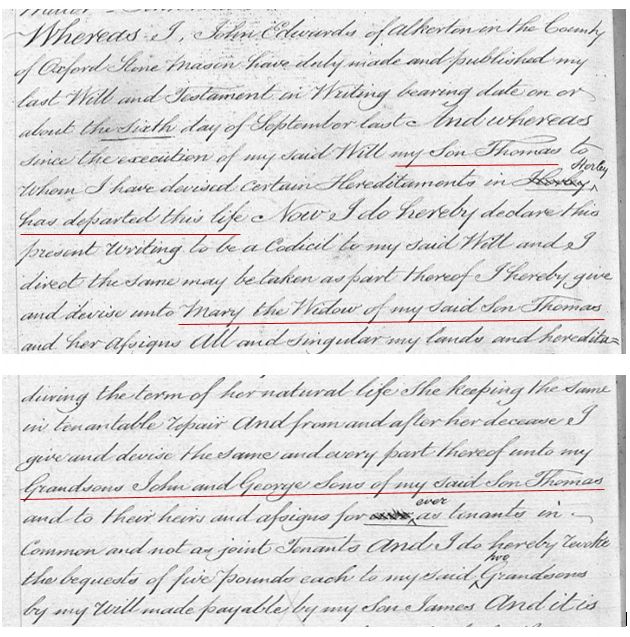 Whereas I, John Edwards of Alkerton in the County
of Oxford Stone Mason have duly made and published my
last Will and Testament in Writing bearing date on or
about the sixth day of September last And whereas
since the execution of my said Will my Son Thomas to
whom I have devised certain Hereditaments in Horley
has departed this life Now I do hereby declare this
present Writing to be a Codicil to my said Will and I
direct the same may be taken as part thereof I hereby give
and devise unto Mary the Widow of my said Son Thomas
and her assigns All and Singular my lands and heredita=
during the term of her natural life She keeping the same
in tenantable repair And from and after her decease I
give and devise the same and every part thereof unto my
Grandsons John and George Sons of my said Son Thomas
and to their heirs and assigns for ever as tenants in
Common and not as joint Tenants And I do hereby revoke
the bequests of five pounds each to my said two Grandsons
by my Will made payable by my Son James And it is